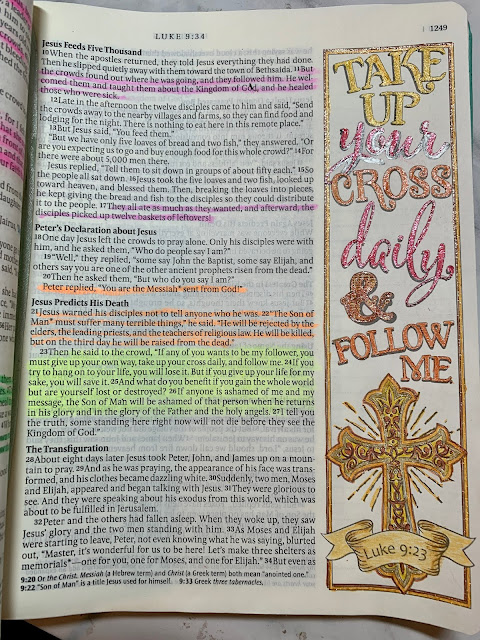 LUKE 9:34
1249
Jesus Feeds Five Thousand
10 When the apostles returned, they told Jesus everything they had done.
Then he slipped quietly away with them toward the town of Bethsaida. 11 But
the crowds found out where he was going, and they followed him. He wel-
comed them and taught them about the Kingdom of God, and he healed
those who were sick.
12 Late in the afternoon the twelve disciples came to him and said, “Send
the crowds away to the nearby villages and farms, so they can find food and
lodging for the night. There is nothing to eat here in this remote place.”
13 But Jesus said, “You feed them.”
“But we have only five loaves of bread and two fish,” they answered. “Or
are you expecting us to go and buy enough food for this whole crowd?” 14 For
there were about 5,000 men there.
Jesus replied, “Tell them to sit down in groups of about fifty each.” 15 So
the people all sat down. 16 Jesus took the five loaves and two fish, looked up
toward heaven, and blessed them. Then, breaking the loaves into pieces,
he kept giving the bread and fish to the disciples so they could distribute
it to the people. 17 They all ate as much as they wanted, and afterward, the
disciples picked up twelve baskets of leftovers!
Peter’s Declaration about Jesus
18 One day Jesus left the crowds to pray alone. Only his disciples were with
him, and he asked them, “Who do people say I am?”
19 “Well,” they replied, “some say John the Baptist, some say Elijah, and
others say you are one of the other ancient prophets risen from the dead.”
20 Then he asked them, “But who do you say I am?”
Peter replied, “You are the Messiah* sent from God!”
Jesus Predicts His Death
21 Jesus warned his disciples not to tell anyone who he was. 22 “The Son of
Man* must suffer many terrible things,” he said. “He will be rejected by the
elders, the leading priests, and the teachers of religious law. He will be killed,
but on the third day he will be raised from the dead.”
23 Then he said to the crowd, “If any of you wants to be my follower, you
must give up your own way, take up your cross daily, and follow me. 24 If you
try to hang on to your life, you will lose it. But if you give up your life for my
sake, you will save it. 25 And what do you benefit if you gain the whole world
but are yourself lost or destroyed? 26 If anyone is ashamed of me and my
message, the Son of Man will be ashamed of that person when he returns
in his glory and in the glory of the Father and the holy angels. 27 I tell you
the truth, some standing here right now will not die before they see the
Kingdom of God.”
The Transfiguration
28 About eight days later Jesus took Peter, John, and James up on a moun-
tain to pray. 29 And as he was praying, the appearance of his face was trans-
formed, and his clothes became dazzling white. 30 Suddenly, two men, Moses
and Elijah, appeared and began talking with Jesus. 31 They were glorious to
see. And they were speaking about his exodus from this world, which was
about to be fulfilled in Jerusalem.
32 Peter and the others had fallen asleep. When they woke up, they saw
Jesus’ glory and the two men standing with him. 33 As Moses and Elijah
were starting to leave, Peter, not even knowing what he was saying, blurted
out, “Master, it’s wonderful for us to be here! Let’s make three shelters as
memorials*—one for you, one for Moses, and one for Elijah.” 34 But even as
9:20 Or the Christ. Messiah (a Hebrew term) and Christ (a Greek term) both mean “anointed one.”
9:22 “Son of Man” is a title Jesus used for himself. 9:33 Greek three tabernacles.
TAKE
UP
your
CROSS
daily,
&
FOLLOW
ME.
Luke 9:23